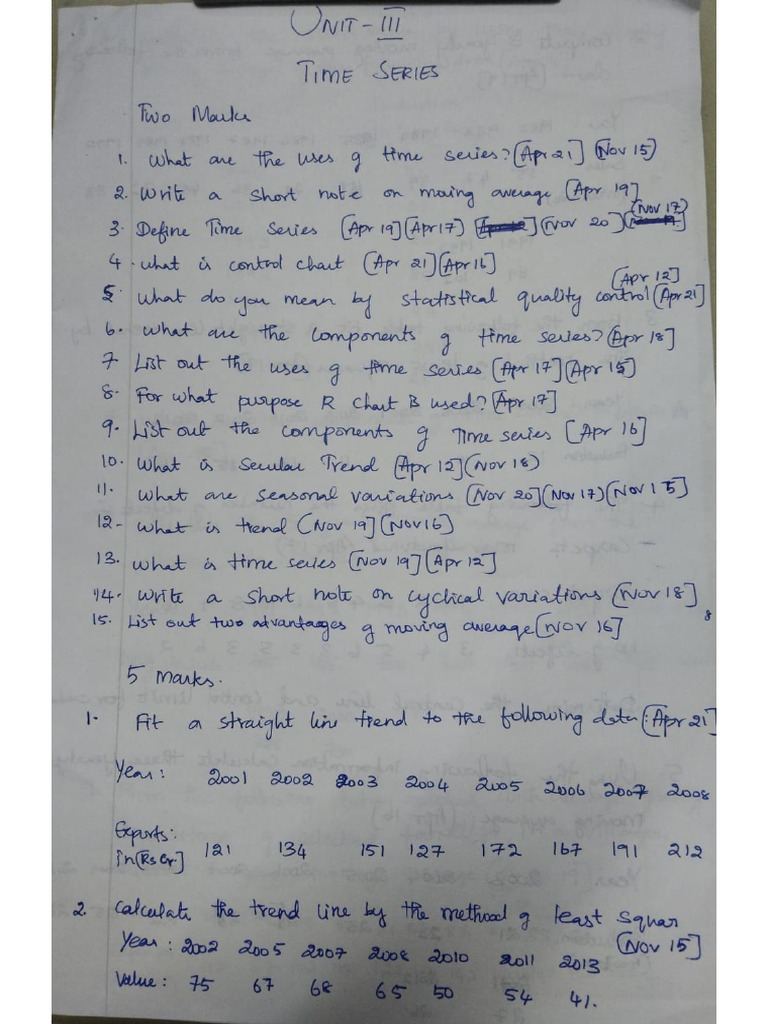 UNIT - III
TIME SERIES
Two Marks
1. What are the uses of time series? [Apr 21] [Nov 15)
2. Write a short note on moving average [Apr 19]
(Nov 17)
3. Define Time Series [Apr 19] [Apr 17) (Nov 20)
4. What is control chart (Apr 21] [Apr 16]
[Apr 12]
5. What do you mean by statistical quality control [Apr 21]
6. What are the components of time series? [Apr 18]
7 List out the uses of time series [Apr 17] [Apr 15]
8. For what purpose R chart B used? [Apr 17]
9. List out the components of Time series [Apr 16]
10. What is Secular Trend [Apr 12] (Nov 18)
11. What are seasonal variations (Nov 20] (Nov 17) (Nov 15]
12- What is trend (Nov 19] [Nov 16)
13. What is time series (Nov 19] [Apr 12]
14. Write a short note on cyclical variations [Nov 18]
15. List out two advantages of moving average [Nov 16]
5 Marks.
1. Fit a straight line trend to the following data: [Apr 21]
Year: 2001 2002 2003 2004 2005 2006 2007 2008
Exports:
in [Rs Cr.] 121 134 151 127 172 167 191 212
2. Calculate the trend line by the method of least Squar
[Nov 15]
Year : 2002 2005 2007 2008 2010 2011 2013
Value : 75 67 68 65 50 54 41.